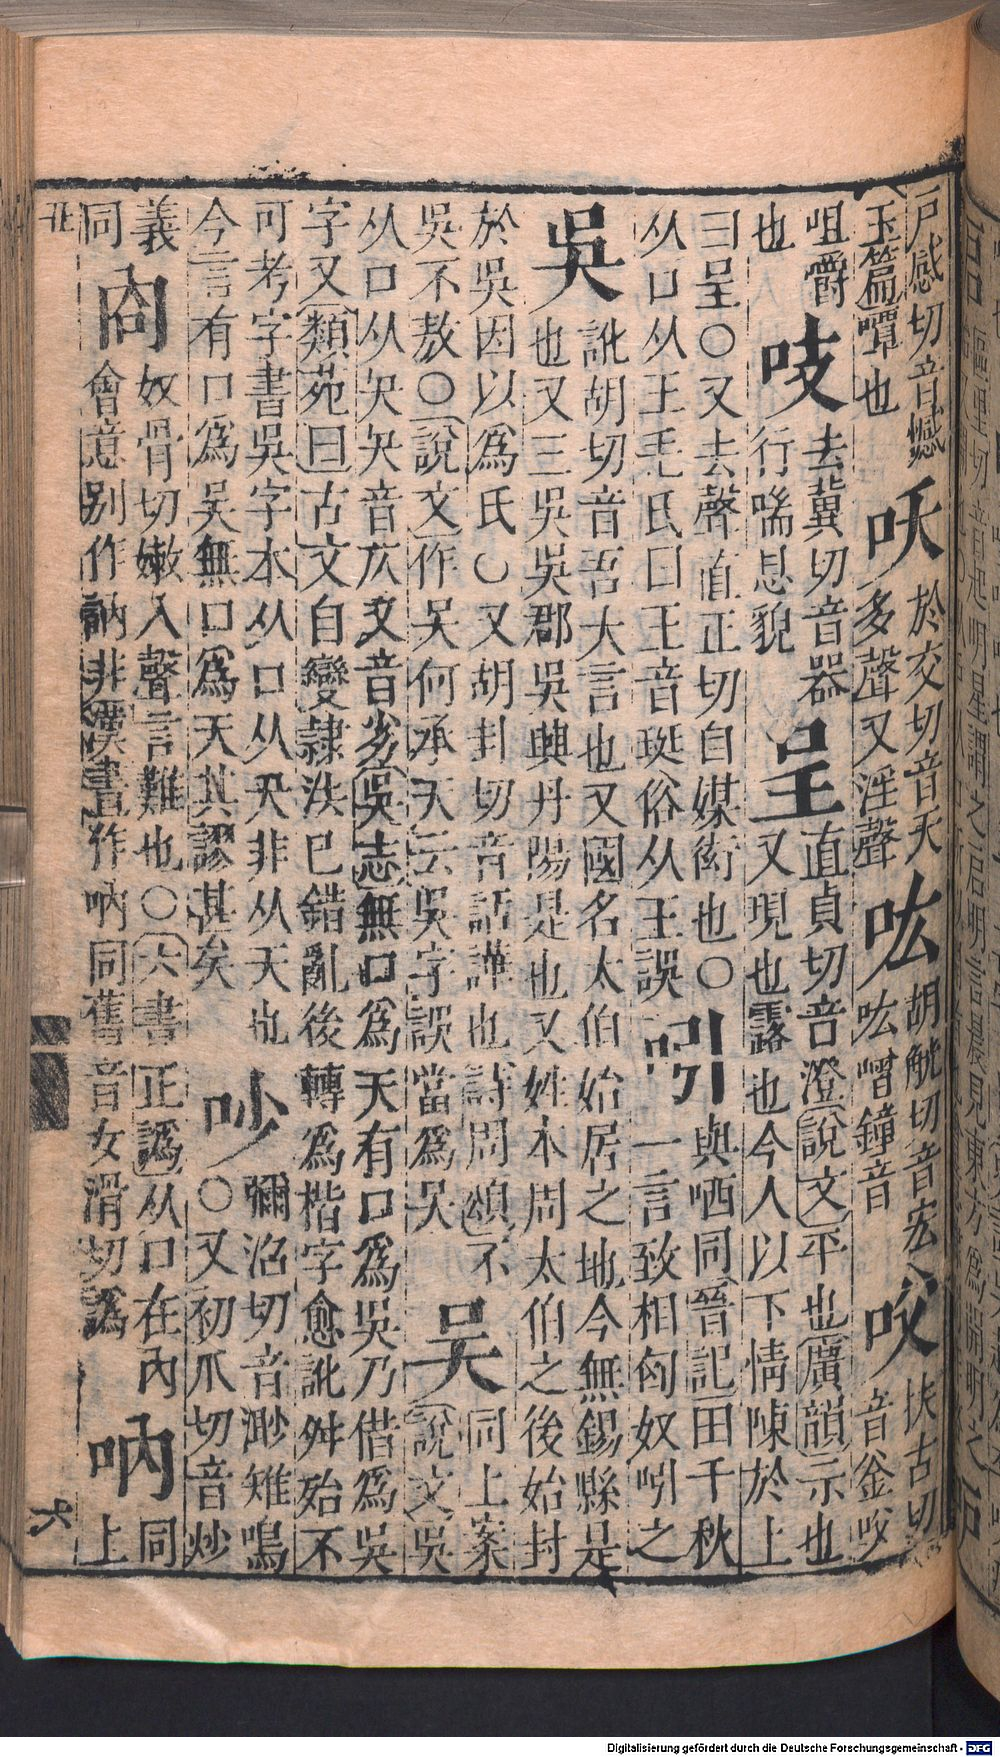 戸感切音憾 吷於交切音夭 吰胡觥切音宏 㕮扶古切
玉篇嘾也 多聲又淫聲 吰噌鐘音 音釡㕮
咀嚼 吱去冀切音器 呈直貞切音澄說文平也廣韻示也
也 行喘息貌 又現也露也今人以下情陳於上
曰呈○又去聲直正切自媒衒也○吲與哂同晉記田千秋
从口从王毛氏曰王音珽俗从王誤 一言致相匈奴吲之
吳 訛胡切音吾大言也又國名太伯始居之地今無錫縣是
也又三吳吳郡吳興丹陽是也又姓本周太伯之後始封
於吳因以爲氏○又胡卦切音話譁也詩周頌不 吴同上案
吳不敖○說文作吴何承天云吳字誤當爲吴 說文吳
从口从夨夨音仄又音劣吳志無口爲天有口爲吳乃借爲吳
字又類苑曰古文自變隷法已錯亂後轉爲楷字愈訛舛殆不
可考字書吳字本从口从夨非从天也 吵彌沼切音渺雉鳴
今言有口爲吴無口爲天其謬甚矣 ○又初爪切音炒
義 㕯奴骨切嫩入聲言難也○六書正譌从口在內 吶同
同 會意别作訥非漢書作吶同舊音女滑切譌 上
六
Digitalisierung gefördert durch die Deutsche Forschungsgemeinschaft - DFG